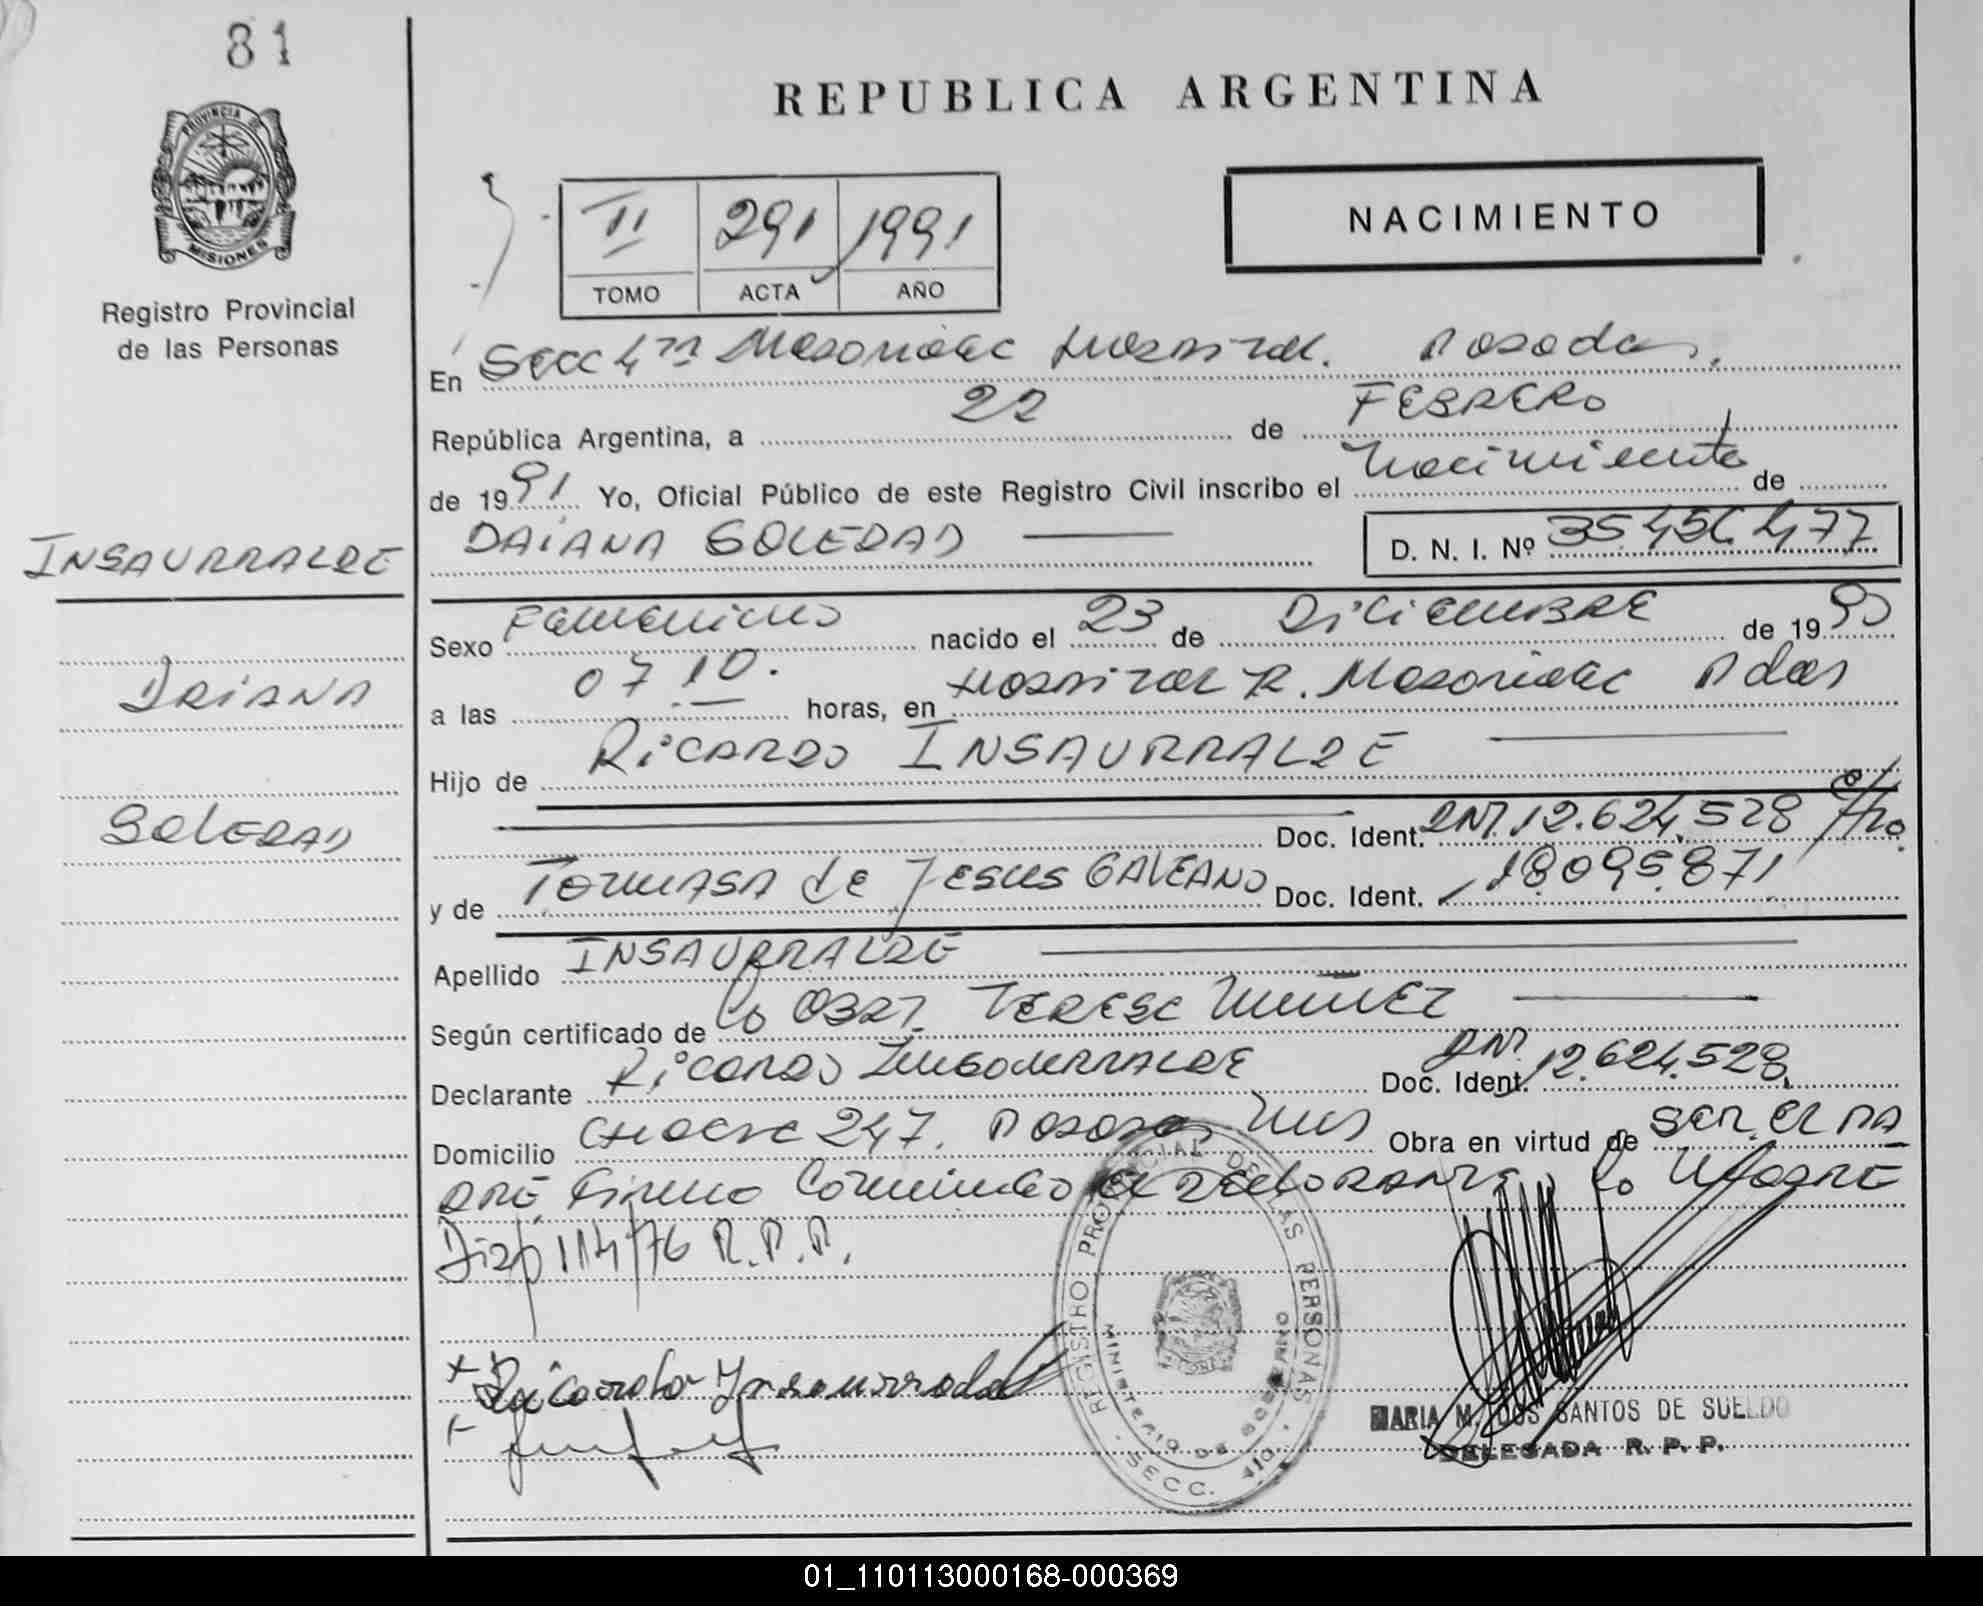 81
PROVINCIA DE
MISIONES
Registro Provincial
de las Personas
INSAURRALDE
DAIANA
SOLEDAD
REPUBLICA ARGENTINA
II 291 1991
TOMO ACTA AÑO
NACIMIENTO
En Secc 4ta Madariaga Hospital. Posadas.
República Argentina, a 22 de FEBRERO
de 1991 Yo, Oficial Público de este Registro Civil inscribo el Nacimiento de
DAIANA SOLEDAD
D. N. I. Nº 35.456.477
Sexo Femenino nacido el 23 de DiCiEMBRE de 1990
a las 07 10. horas, en Hospital R. Madariaga Pdas
Hijo de RiCARDO INSAURRALDE
Doc. Ident. DNI. 12.624.528
y de TOMASA de JESUS GALEANO Doc. Ident. 18.095.871
Apellido INSAURRALDE
Según certificado de la OBST. TERESA NUÑEZ
Declarante RiCARDO INSAURRALDE Doc. Ident. DNI. 12.624.528
Domicilio 247. Posadas Obra en virtud de SER EL PA
DRE, Firma el DECLARANTE y la MADRE
Disp 114/76 R.P.P.
+ Ricardo Insaurralde
+
REGISTRO PROVINCIAL DE LAS PERSONAS
MINISTERIO DE GOBIERNO
SECC. 4ta
MARIA M. DOS SANTOS DE SUELDO
DELEGADA R. P. P.
01_110113000168-000369